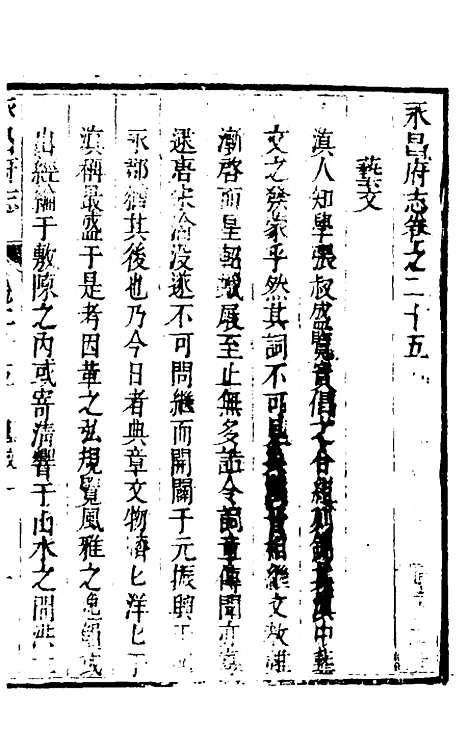 永昌府志卷之二十五
藝文
滇人知學張叔盛覽實倡之合組列錦其滇中藝
文之發家乎然其詞不可見矣相繼文教雖
漸啓而皇詔蠟展至止無多誥令詞章傳聞亦
逮唐宋淪没遂不可問繼而開闢于元振興于
永郡猶其後也乃今日者典章文物濟匕洋匕于
滇稱最盛于是考因革之弘規覽風雅之逸韻或
出經綸于敷陳之内或寄清響于山水之間共
永昌府志